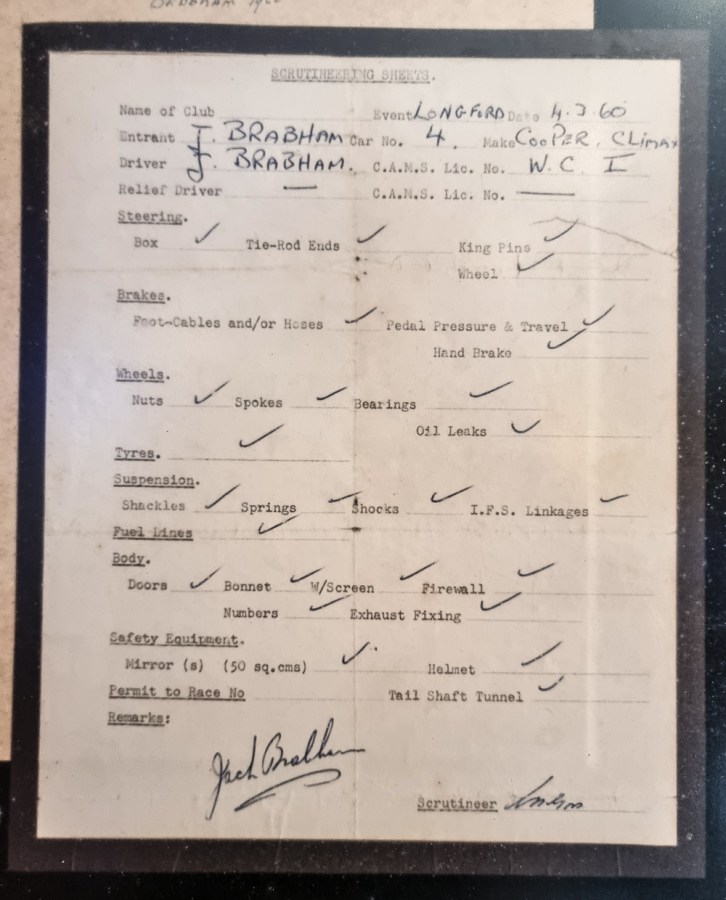 BRABHAM
SCRUTINEERING SHEETS.
Name of Club Event LONGFORD Date 4.3.60
Entrant J. BRABHAM Car No. 4. Make COOPER. CLIMAX
Driver J. BRABHAM. C.A.M.S. Lic. No. W.C. I
Relief Driver — C.A.M.S. Lic. No. —
Steering.
Box ✓ Tie-Rod Ends ✓ King Pins ✓
Wheel ✓
Brakes.
Foot-Cables and/or Hoses ✓ Pedal Pressure & Travel ✓
Hand Brake ✓
Wheels.
Nuts ✓ Spokes ✓ Bearings ✓
Oil Leaks ✓
Tyres. ✓
Suspension.
Shackles ✓ Springs ✓ Shocks ✓ I.F.S. Linkages ✓
Fuel Lines ✓
Body.
Doors ✓ Bonnet ✓ W/Screen ✓ Firewall ✓
Numbers ✓ Exhaust Fixing ✓
Safety Equipment.
Mirror (s) (50 sq.cms) ✓ Helmet ✓
Permit to Race No Tail Shaft Tunnel ✓
Remarks:
Jack Brabham
Scrutineer